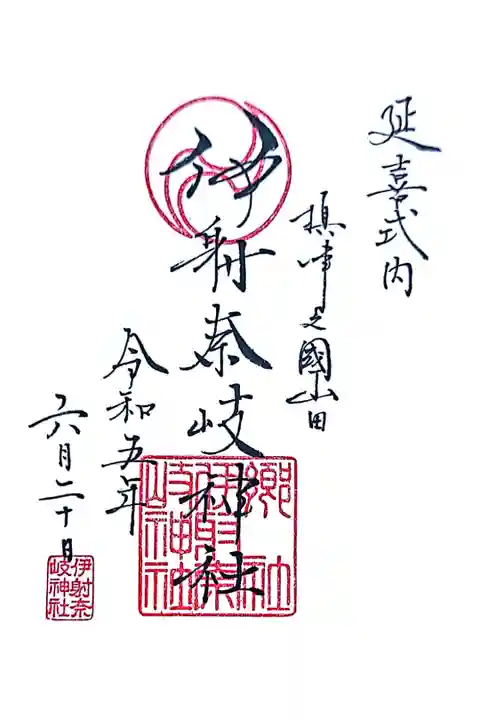 延喜式内
摂津之國山田
伊射奈岐神社
令和五年
六月二十日
郷社
伊射奈
岐神社
伊射奈
岐神社